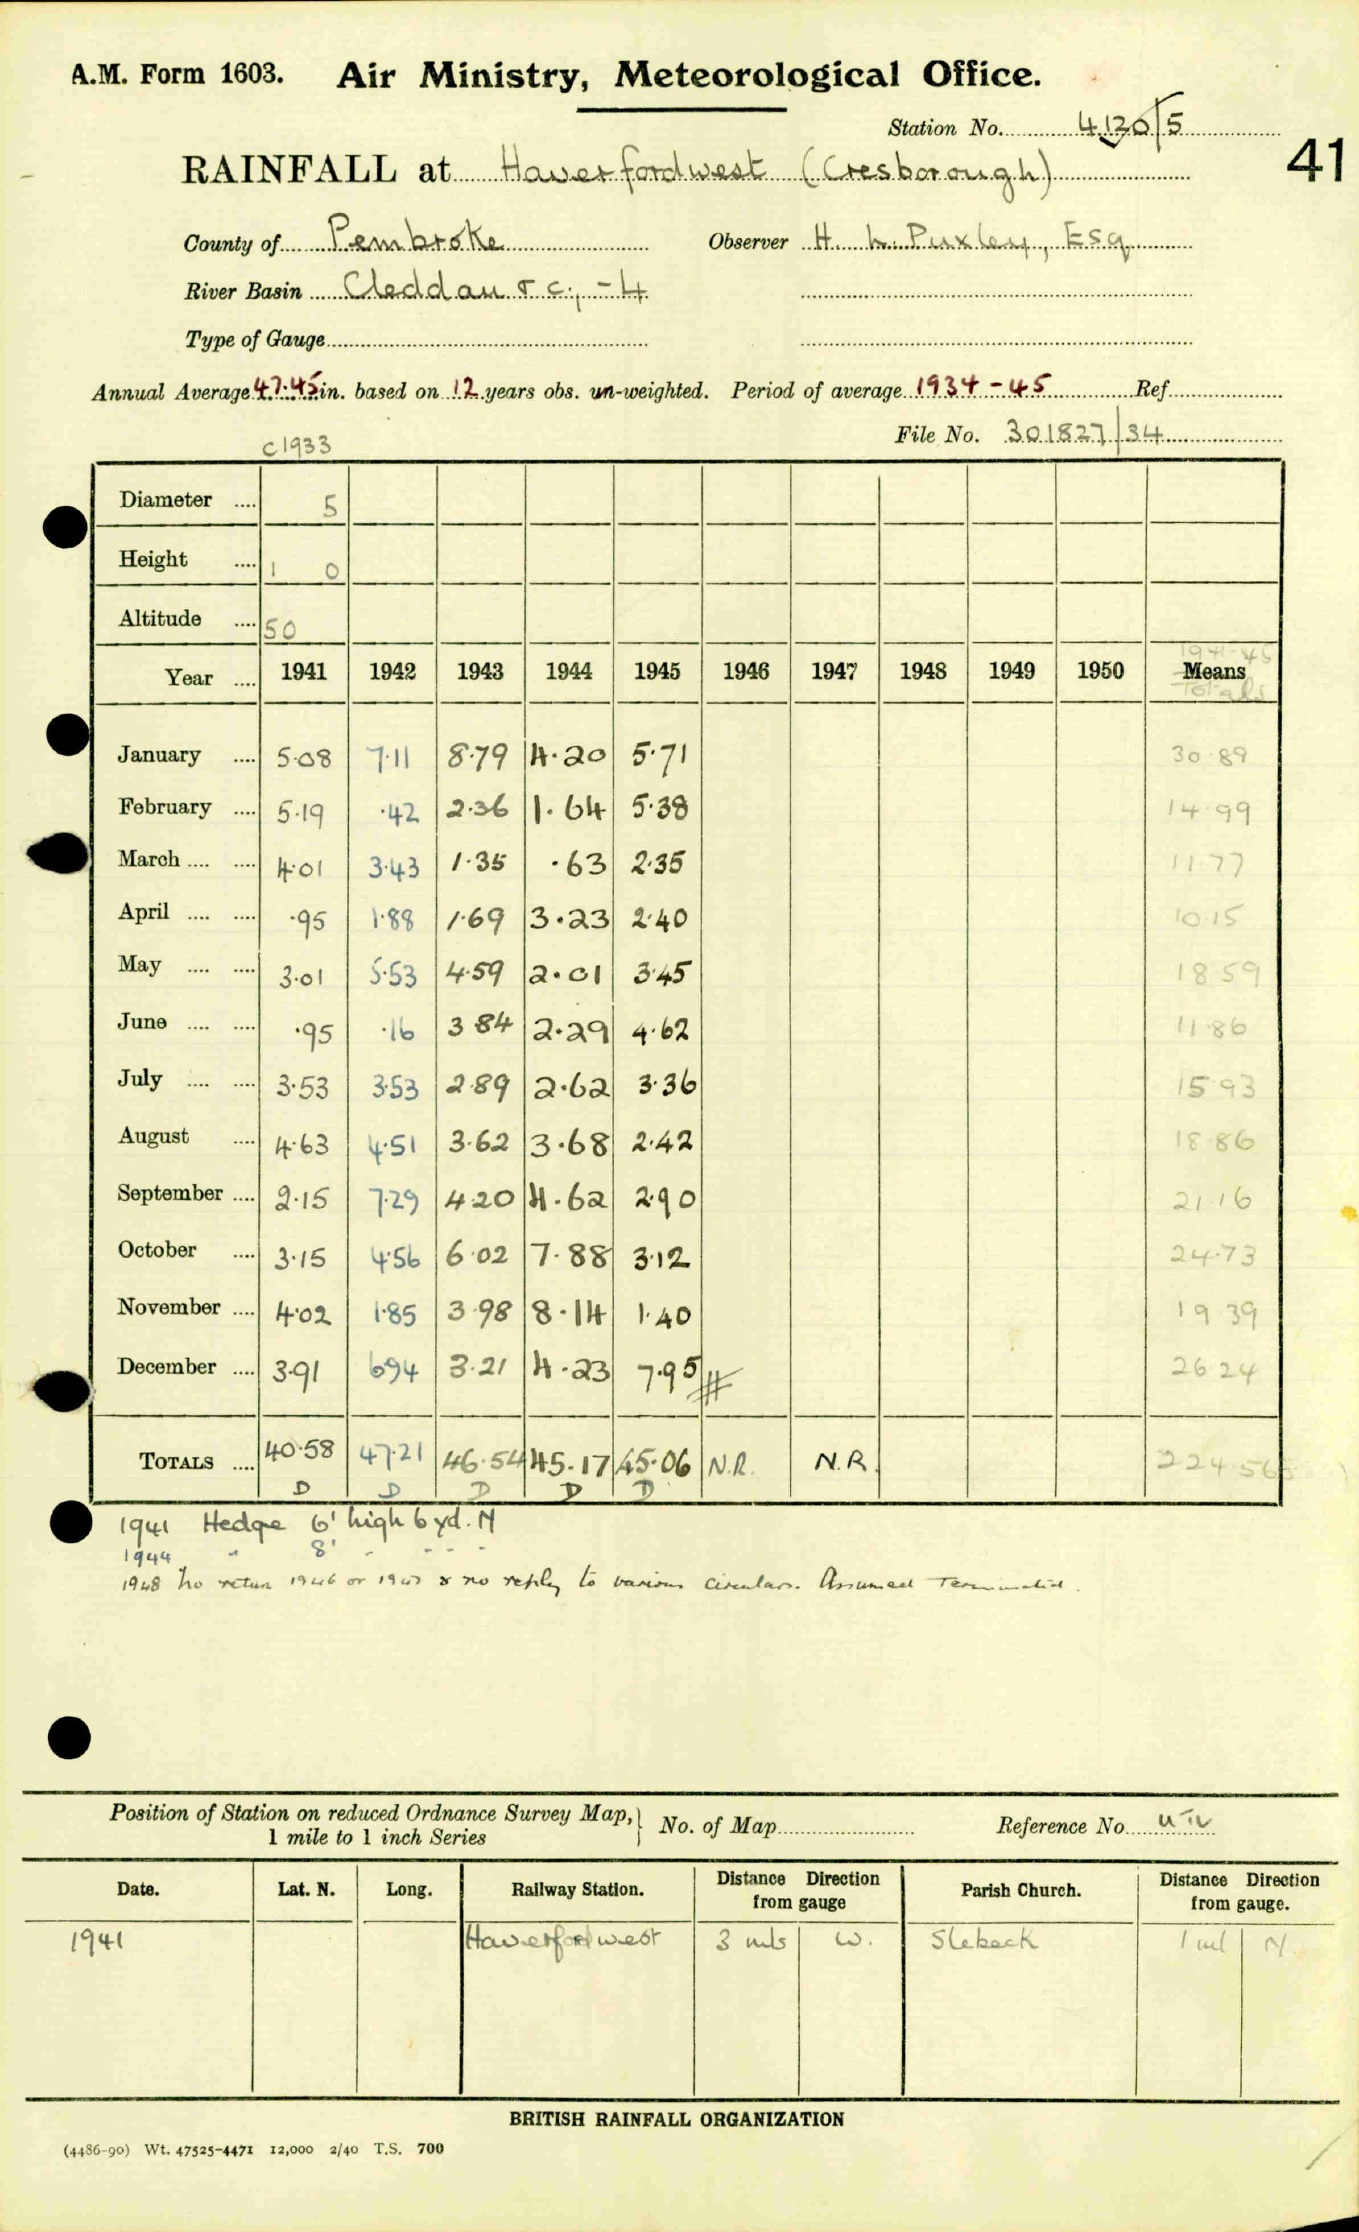 A.M. Form 1603. Air Ministry, Meteorological Office.
Station No. 4120/5
41
RAINFALL at Haverfordwest (Cresborough)
County of Pembroke Observer H. L. Puxley, Esq
River Basin Cleddau & c., -4
Type of Gauge
Annual Average 47.45 in. based on 12 years obs. un-weighted. Period of average 1934-45 Ref.
File No. 301827/34
c1933
Diameter .... 5
Height .... 1 0
Altitude .... 50
1941-45
Year .... 1941 1942 1943 1944 1945 1946 1947 1948 1949 1950 Means
Totals
January .... 5.08 7.11 8.79 4.20 5.71 30.89
February .... 5.19 .42 2.36 1.64 5.38 14.99
March .... .... 4.01 3.43 1.35 .63 2.35 11.77
April .... .... .95 1.88 1.69 3.23 2.40 10.15
May .... .... 3.01 5.53 4.59 2.01 3.45 18.59
June .... .... .95 .16 3 84 2.29 4.62 11.86
July .... .... 3.53 3.53 2.89 2.62 3.36 15.93
August .... 4.63 4.51 3.62 3.68 2.42 18.86
September .... 2.15 7.29 4.20 4.62 2.90 21.16
October .... 3.15 4.56 6.02 7.88 3.12 24.73
November .... 4.02 1.85 3.98 8.14 1.40 19.39
December .... 3.91 6.94 3.21 4.23 7.95 26.24
TOTALS .... 40.58 47.21 46.54 45.17 45.06 N.R. N.R. 224.56
D D D D D
1941 Hedge 6' high 6 yd. N
1944 " 8' " " " "
1948 No return 1946 or 1947 & no reply to various circulars. Assumed terminated.
Position of Station on reduced Ordnance Survey Map, 1 mile to 1 inch Series } No. of Map Reference No.
Date. Lat. N. Long. Railway Station. Distance Direction from gauge Parish Church. Distance Direction from gauge.
1941 Haverfordwest 3 mls W. Slebeck 1 ml N.
BRITISH RAINFALL ORGANIZATION
(4486-90) Wt. 47525-4471 12,000 2/40 T.S. 700